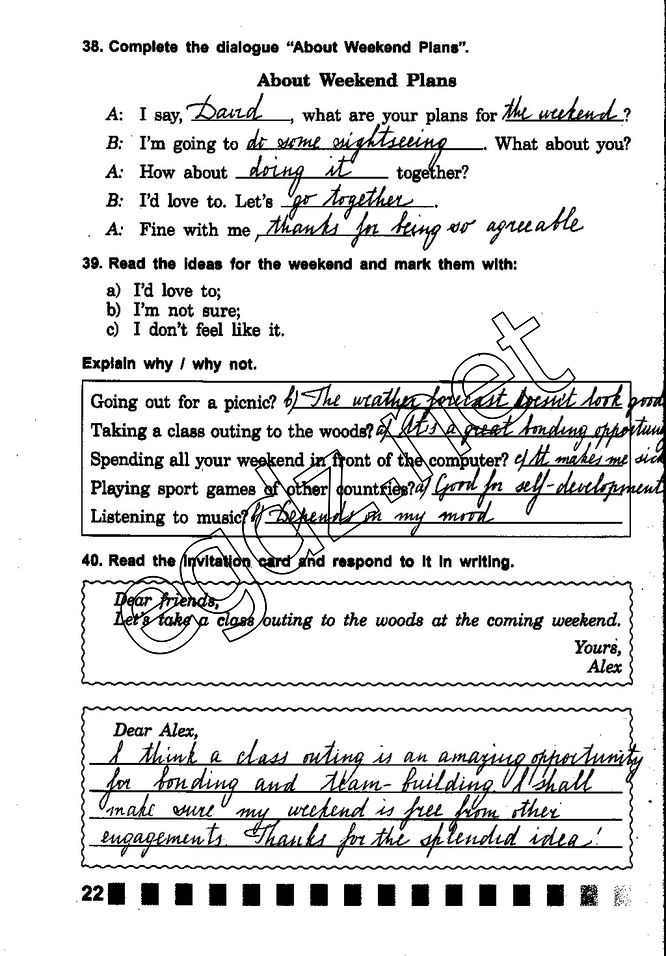 38. Complete the dialogue "About Weekend Plans".
About Weekend Plans
A: I say, David, what are your plans for the weekend?
B: I'm going to do some sightseeing. What about you?
A: How about doing it together?
B: I'd love to. Let's go together.
A: Fine with me, thanks for being so agreeable
39. Read the ideas for the weekend and mark them with:
a) I'd love to;
b) I'm not sure;
c) I don't feel like it.
Explain why / why not.
Going out for a picnic? b) The weather forecast doesn't look good
Taking a class outing to the woods? a) It's a great bonding opportunity
Spending all your weekend in front of the computer? c) It makes me sick
Playing sport games of other countries? a) Good for self-development
Listening to music? b) Depends on my mood
40. Read the invitation card and respond to it in writing.
Dear friends,
Let's take a class outing to the woods at the coming weekend.
Yours,
Alex
Dear Alex,
I think a class outing is an amazing opportunity
for bonding and team-building I shall
make sure my weekend is free from other
engagements. Thanks for the splendid idea!
22
egdz.net